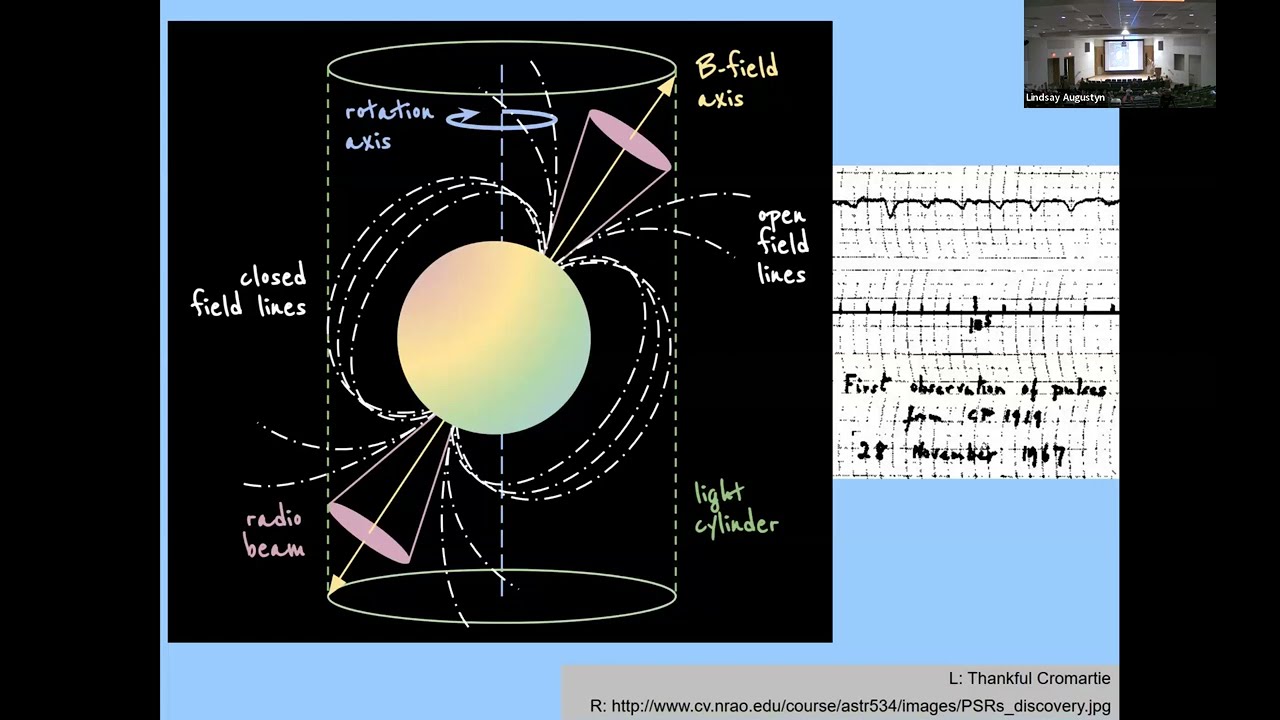 Lindsay Augustyn
B-field
axis
rotation
axis
open
field
lines
closed
field lines
10ˢ
First observation of pulses
from CP 1919
28 November 1967
light
cylinder
radio
beam
L: Thankful Cromartie
R: http://www.cv.nrao.edu/course/astr534/images/PSRs_discovery.jpg